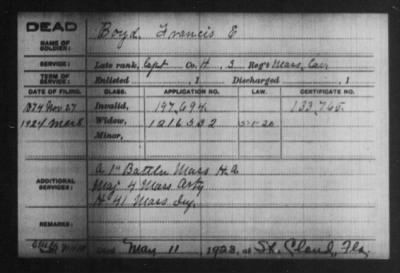 DEAD
NAME OF SOLDIER: Boyd, Francis E
SERVICE: Late rank, Capt Co. H, 3 Reg't Mass. Cav.
TERM OF SERVICE: Enlisted , 1 Discharged , 1
DATE OF FILING. CLASS. APPLICATION NO. LAW. CERTIFICATE NO.
1874 Nov. 27 Invalid, 197,694 133,765
1924 Mar 8 Widow, 1216532 5-1-20
Minor,
ADDITIONAL SERVICES: A 1" Battln Mass H.A
Maj 4 Mass Arty
H 41 Mass Inf
REMARKS:
Died May 11 1923, at St. Cloud, Fla,